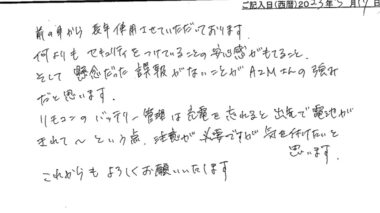 ご記入日(西暦)2023年5月19日
前の車から長年使用させていただいております。
何よりもセキュリティをつけていることの安心感がもてること。
そして懸念だった誤報がないことがA2Mさんの強み
だと思います。
リモコンのバッテリー管理は充電を忘れると出先で電池が
きれて〜という点、注意が必要ですが気を付けたいと
思います。
これからもよろしくお願いいたします